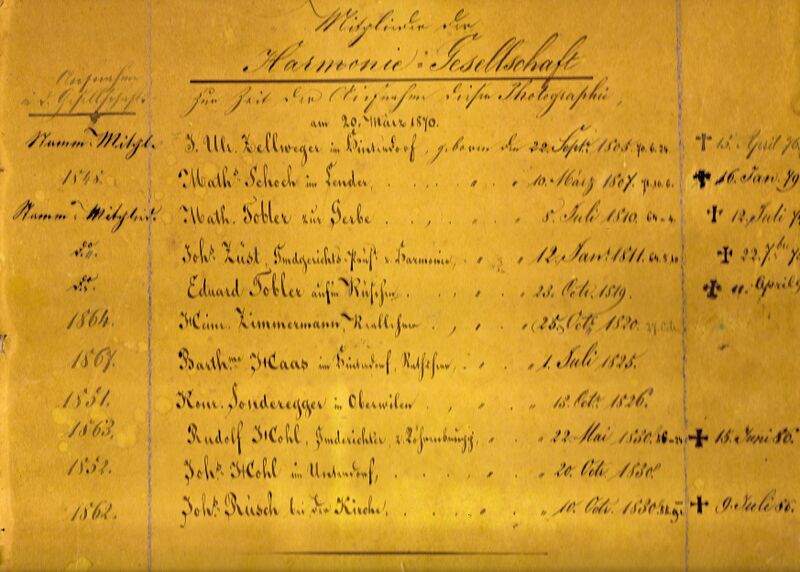 Mitglieder der
Harmonie-Gesellschaft
Aufnahme
i. d. Gesellschaft.
zur Zeit der Aufnahme dieser Photographie,
am 20. März 1870.
Stamm-Mitgl. J. Ulr. Zellweger im Hinterdorf, geboren den 22. Sept. ✝ 15. April 76.
1848. Math. Schoch im Lender, " " 10. März 1807. ✝ 16. Jan. 79
Stamm-Mitglied. Math. Tobler zur Gerbe " " 8. Juli 1810. ✝ 12. Juli
do. Johs. Züst, Gmdgerichts-Präst. z. Harmonie, " " 12. Jan. 1811. ✝ 22. 7bre
do. Eduard Tobler auf'm " " 23. Oct. 1819. ✝ 11. April
1864. Heinr. Zimmermann, Reallehrer " " (25. Oct. 1820.
1867. Barthme Haas im Hinterdorf, " " 1. Juli 1825.
1851. Konr. Sonderegger in Oberwilen " " 18. Oct. 1826.
1863. Rudolf Hohl, Gmderichter, z. " " 22. Mai 1830. ✝ 15. Juni 80.
1852. Johs. Hohl im Unterdorf, " " 20. Oct. 1830.
1862. Johs. Rüsch bei der Kirche, " " 10. Oct. 1830. ✝ 9. Juli 86.